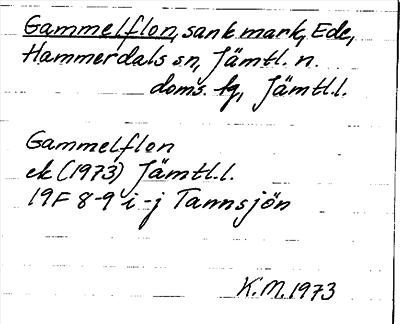 Gammelflon, sank mark, Ede,
Hammerdals sn, Jämtl. n.
doms. hg, Jämtl.l.
Gammelflon
ek (1973) Jämtl.l.
19F 8-9 i-j Tannsjön
K.M. 1973